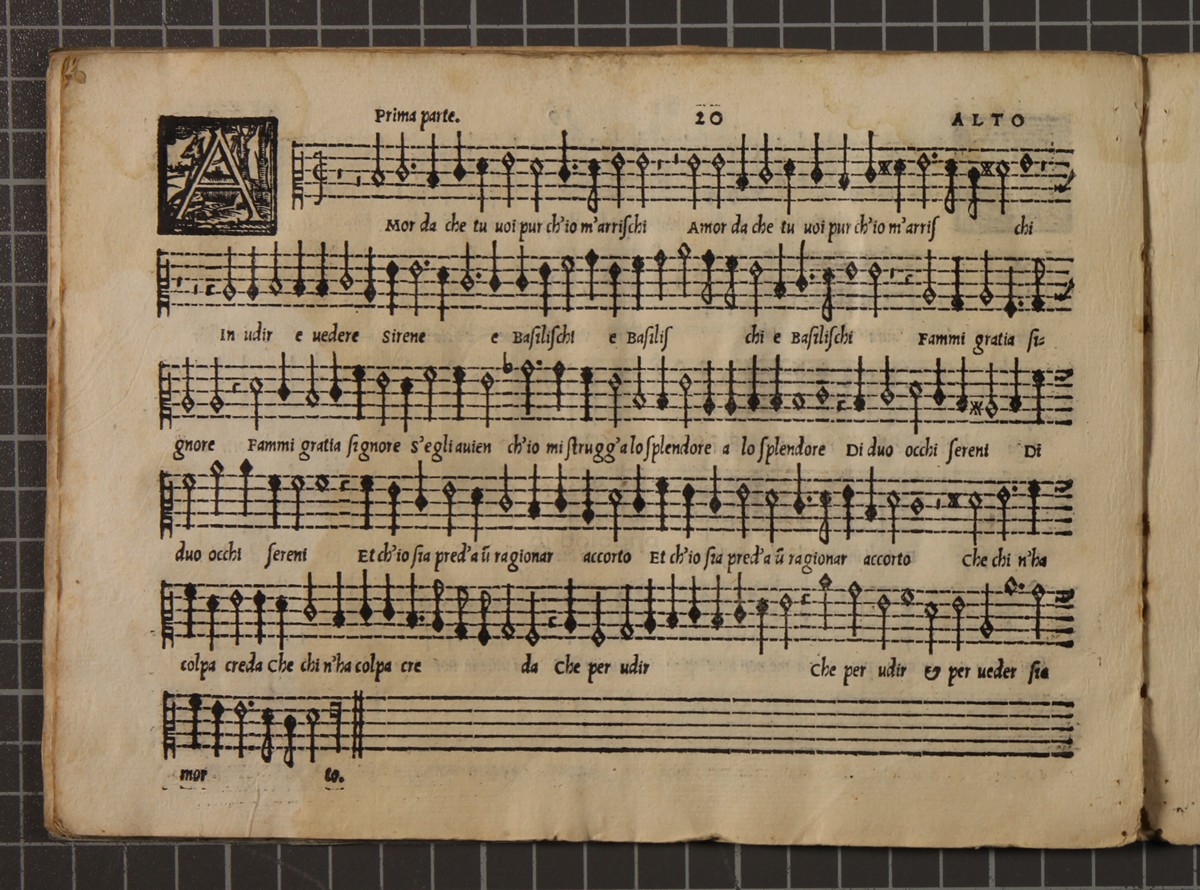 Prima parte. 20 ALTO
A
Mor da che tu uoi pur ch'io m'arriſchi Amor da che tu uoi pur ch'io m'arriſ chi
In udir e uedere Sirene e Baſiliſchi e Baſiliſ chi e Baſiliſchi Fammi gratia ſi=
gnore Fammi gratia ſignore S'egli auien ch'io mi ſtrugg'a lo ſplendore a lo ſplendore Di duo occhi ſereni Di
duo occhi ſereni Et ch'io ſia pred'a ũ ragionar accorto Et ch'io ſia pred'a ũ ragionar accorto Che chi n'ha
colpa creda Che chi n'ha colpa cre da Che per udir Che per udir & per ueder ſia
mor to.